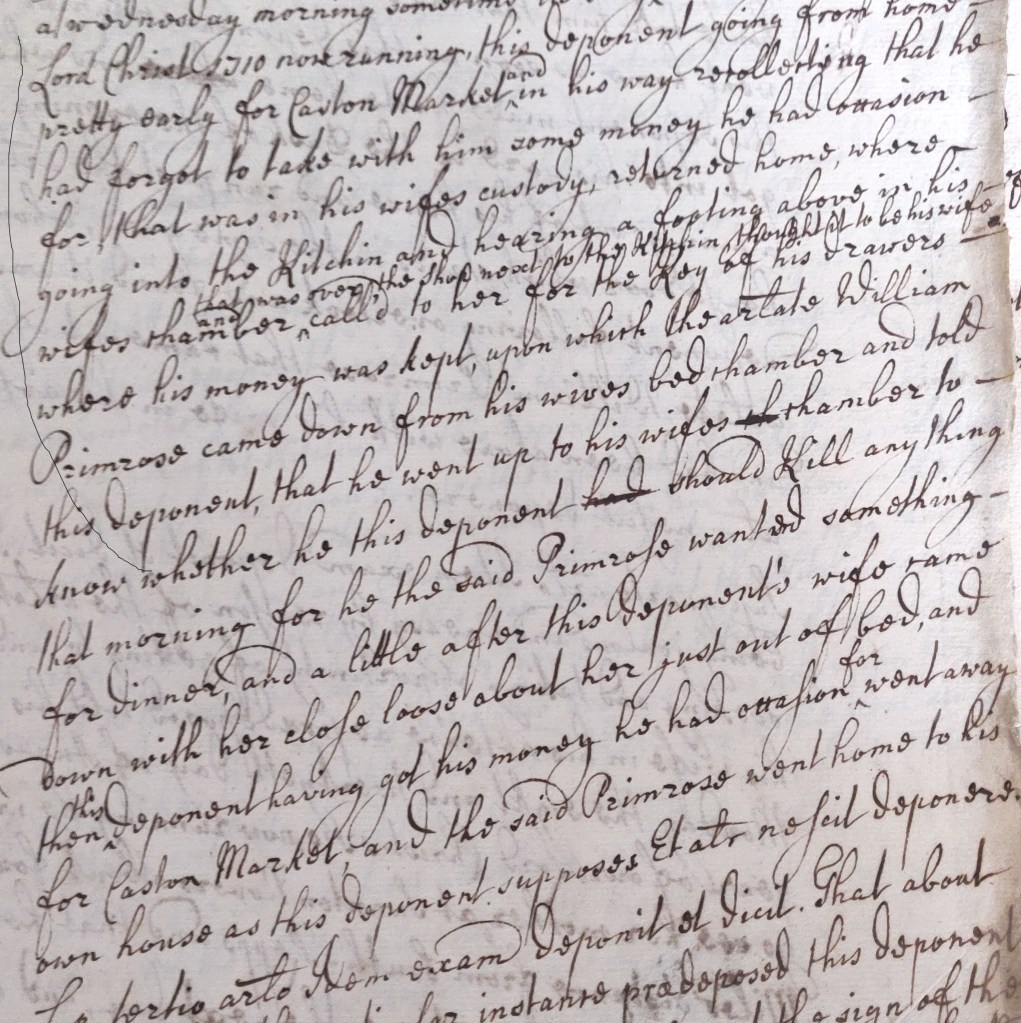 a Wednesday morning sometime
Lord Christ 1710 now running, this deponent going from home
pretty early for Caston Market and in his way recollecting that he
had forgot to take with him some money he had occasion
for, that was in his wifes custody, returned home, where
going into the Kitchin and hearing a footing above in his
that was over the shop next to the Kitchin thought it to be his wife
wifes chamber and call'd to her for the Key of his drawers
where his money was kept, upon which the artate William
Primrose came down from his wives bed chamber and told
this deponent, that he went up to his wifes ch chamber to
know whether he this deponent had should Kill any thing
that morning for he the said Primrose wanted something
for dinner, and a little after this deponent's wife came
down with her close loose about her just out of bed, and
then this deponent having got his money he had occasion for went away
for Caston Market, and the said Primrose went home to his
own house as this deponent supposes Et alr nescit deponere.
tertio arto Idem exam deponit et dicit. That about
instance predeposed this deponent
the sign of the